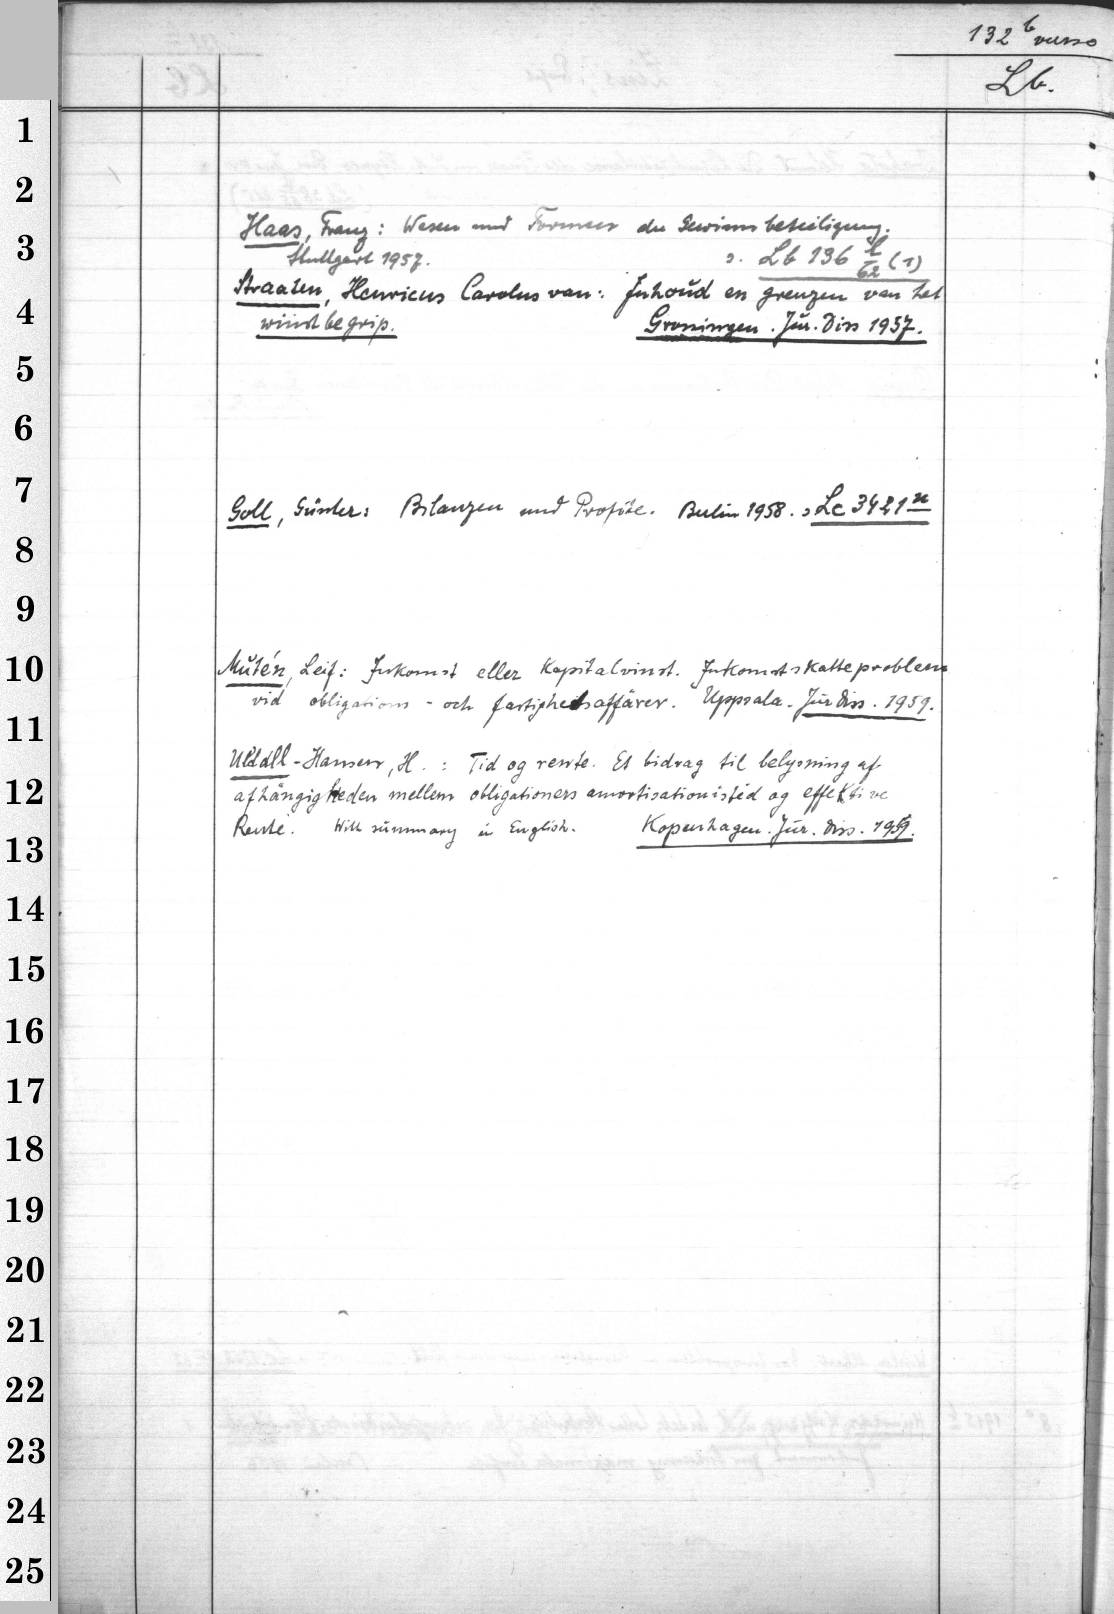 132 b verso
Lb.
Haas, Franz: Wesen und Formen der Gewinnbeteiligung.
Stuttgart 1957. s. Lb 136 l/62 (1)
Straaten, Henricus Carolus van: Inhoud en grenzen van het
winstbegrip. Groningen. Jur. Diss 1957.
Goll, Günter: Bilanzen und Profite. Berlin 1958. s Lc 3421 n
Mutén, Leif: Inkomst eller Kapitalvinst. Inkomstskatteproblem
vid obligations- och fastighetsaffärer. Uppsala. Jur Diss. 1959.
Uldall-Hansen, H.: Tid og rente. Et bidrag til belysning af
afhängigheden mellem obligationers amortisationistid og effektive
Rente. With summary in English. Kopenhagen. Jur. Diss. 1959.
1
2
3
4
5
6
7
8
9
10
11
12
13
14
15
16
17
18
19
20
21
22
23
24
25